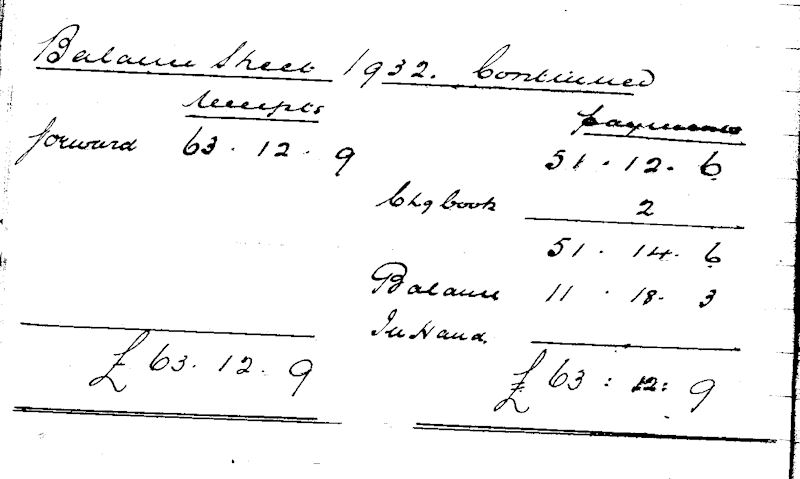 Balance Sheet 1932. Continued
receipts payments
forward 63 . 12 . 9 51 . 12 . 6
Chq book 2
51 . 14 . 6
Balance 11 . 18 . 3
In Hand.
£ 63 . 12 . 9 £ 63 : 12 : 9